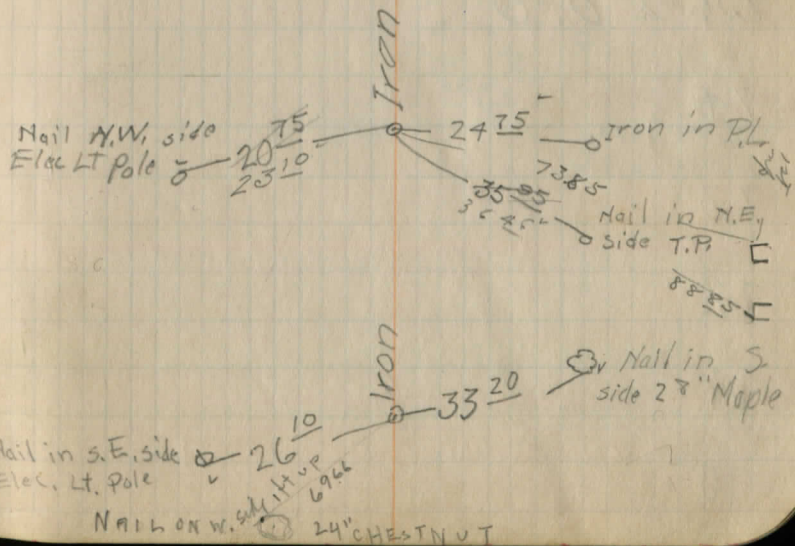 Iron
Nail N.W. side
Elec Lt Pole
20 75
23 10
24 75
Iron in P.L.
73.85
35 95
Nail in N.E.
side T.P.
88.85
Iron
33 20
Nail in S.
side 28" Maple
26 10
Nail in S.E. side
Elec. Lt. Pole
69.66
NAIL ON W. side
24" CHESTNUT